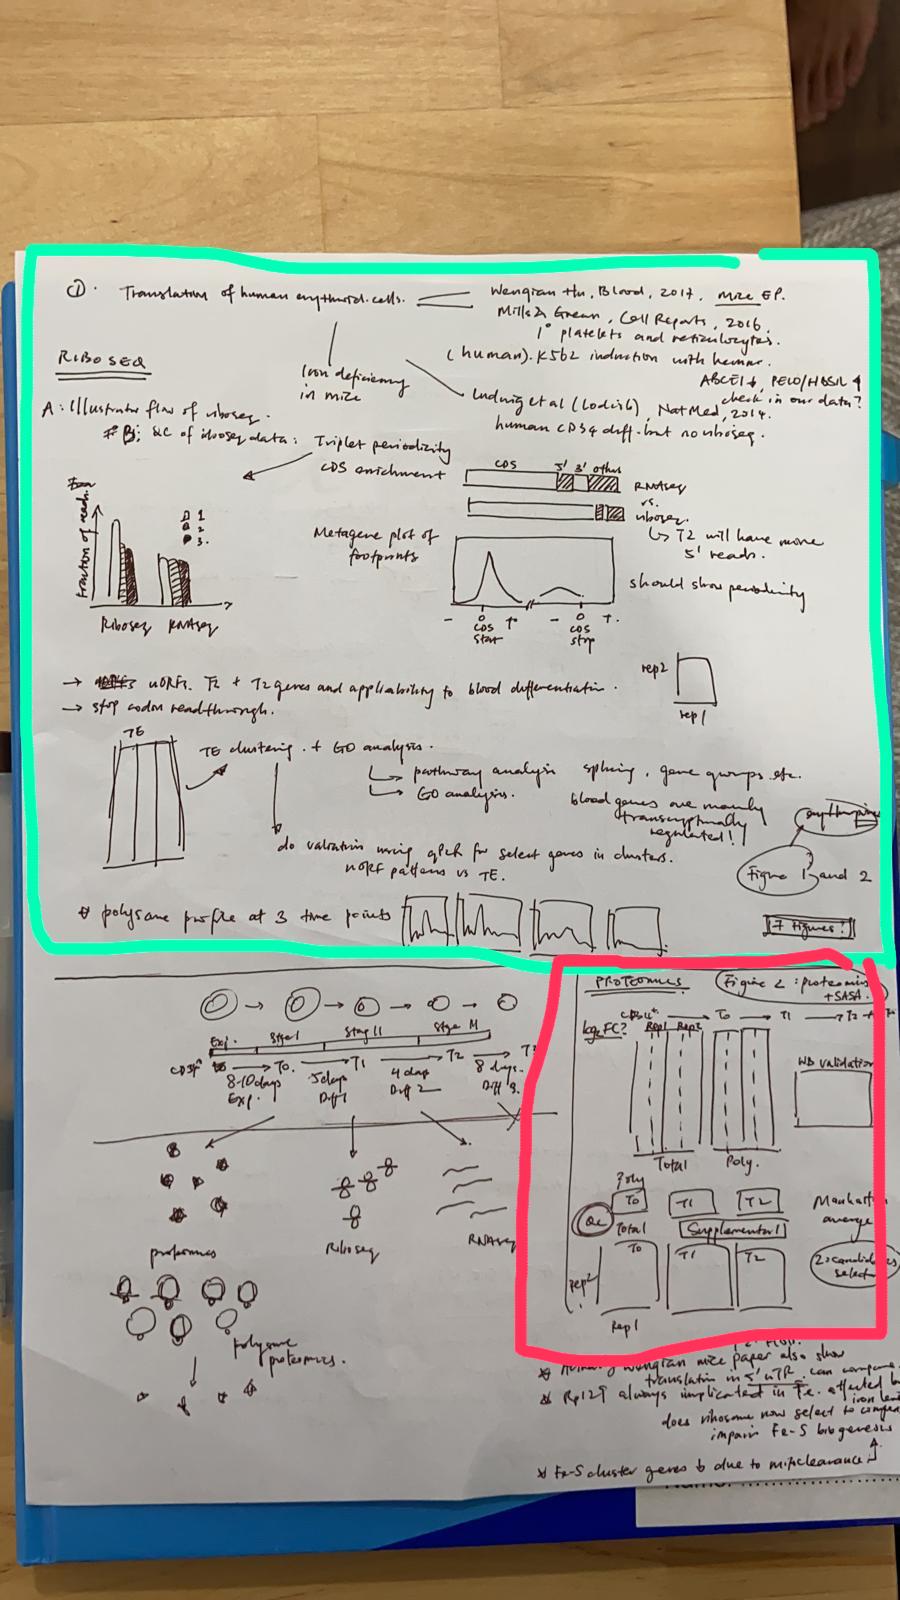 ①. Translation of human erythroid cells.
Wenqian Hu, Blood, 2017, mice EP.
Mills & Green, Cell Reports, 2016,
1° platelets and reticulocytes.
(human). K562 induction with hemin.
ABCE1↓, PELO/HBS1L↑
check in our data?
Iron deficiency
in mice
Ludwig et al (Lodish), Nat Med, 2014.
human CD34 diff. but no riboseq.
RIBOSEQ
A: Illustrator flow of riboseq.
QC of riboseq data: Triplet periodicity
CDS enrichment
CDS 5' 3' others
RNAseq
vs.
riboseq.
↳ T2 will have more
5' reads.
fraction of reads
1
2
3.
Riboseq RNAseq
Metagene plot of
footprints
should show periodicity
- 0 + - 0 +
CDS CDS
start stop
→ uORFs. T2 genes and applicability to blood differentiation.
→ stop codon readthrough.
rep2
rep1
TE
TE clustering. + GO analysis.
↳ pathway analysis splicing, gene groups etc.
↳ GO analysis.
blood genes are mainly
transcriptionally
regulated!
do validation using qPCR for select genes in clusters.
uORF patterns vs TE.
Figure 1 and 2
polysome profile at 3 time points
7 figures!
Exp. Stage I Stage II Stage III
T0 → T1 → T2
8-10 days 5 days 4 days 8 days.
Exp. Diff 1 Diff 2 Diff 3.
proteomics Riboseq RNAseq
polysome
proteomics.
PROTEOMICS
Figure 2: proteomics
+ SASA.
log2 FC?
T0 → T1 → T2
Rep1 Rep2
WB validation
Total Poly.
Poly
T0 T1 T2
QC
Total Supplemental
T0 T1 T2
rep2
Rep1
average
wenqian mice paper also show
translation in 5' UTR. can compare
always implicated in i.e. affected
does ribosome now select to
impair Fe-S biogenesis
Fe-S cluster genes ↓ due to